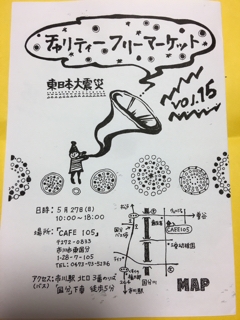 チャリティーフリーマーケット
東日本大震災
VOL.15
日時: 5月27日(日)
10:00~18:00
場所:「CAFE 105」
〒272-0833
市川市東国分
1-28-7-105
アクセス: 市川駅 北口 3番のりば
(バス) 国分下車 徒歩5分
CAFE105
市川駅
MAP